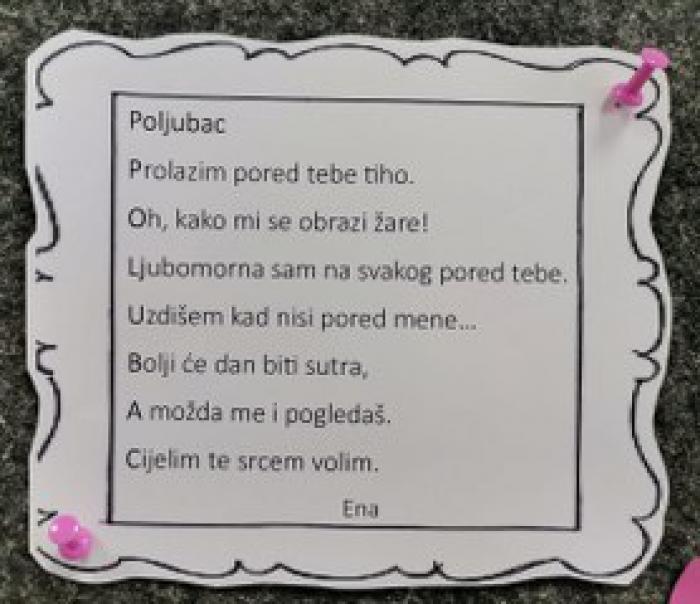 Poljubac
Prolazim pored tebe tiho.
Oh, kako mi se obrazi žare!
Ljubomorna sam na svakog pored tebe.
Uzdišem kad nisi pored mene...
Bolji će dan biti sutra,
A možda me i pogledaš.
Cijelim te srcem volim.
Ena